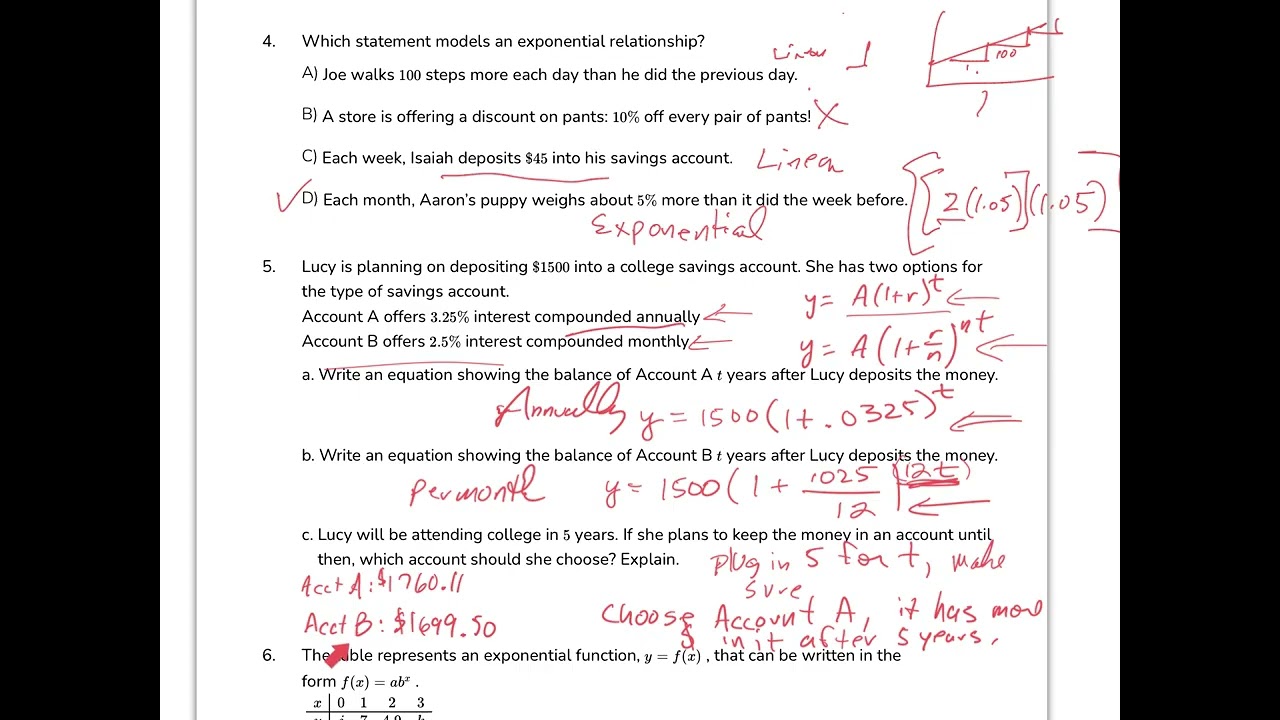 4. Which statement models an exponential relationship?
Linear 1
100
1.
A) Joe walks 100 steps more each day than he did the previous day.
B) A store is offering a discount on pants: 10% off every pair of pants! X
C) Each week, Isaiah deposits $45 into his savings account. Linear
✓ D) Each month, Aaron's puppy weighs about 5% more than it did the week before. [[2(1.05)](1.05)
Exponential
5. Lucy is planning on depositing $1500 into a college savings account. She has two options for
the type of savings account. y = A(1+r)^t ←
Account A offers 3.25% interest compounded annually ←
Account B offers 2.5% interest compounded monthly ← y = A(1+r/n)^nt ←
a. Write an equation showing the balance of Account A t years after Lucy deposits the money.
Annually y = 1500(1+.0325)^t ←
b. Write an equation showing the balance of Account B t years after Lucy deposits the money.
Per month y = 1500(1+ .025/12)^(12t) ←
c. Lucy will be attending college in 5 years. If she plans to keep the money in an account until
then, which account should she choose? Explain. plug in 5 for t, make
sure
Acct A: $1760.11
Acct B: $1699.50
Choose Account A, it has more
$ in it after 5 years.
6. The table represents an exponential function, y = f(x) , that can be written in the
form f(x) = ab^x .
x 0 1 2 3